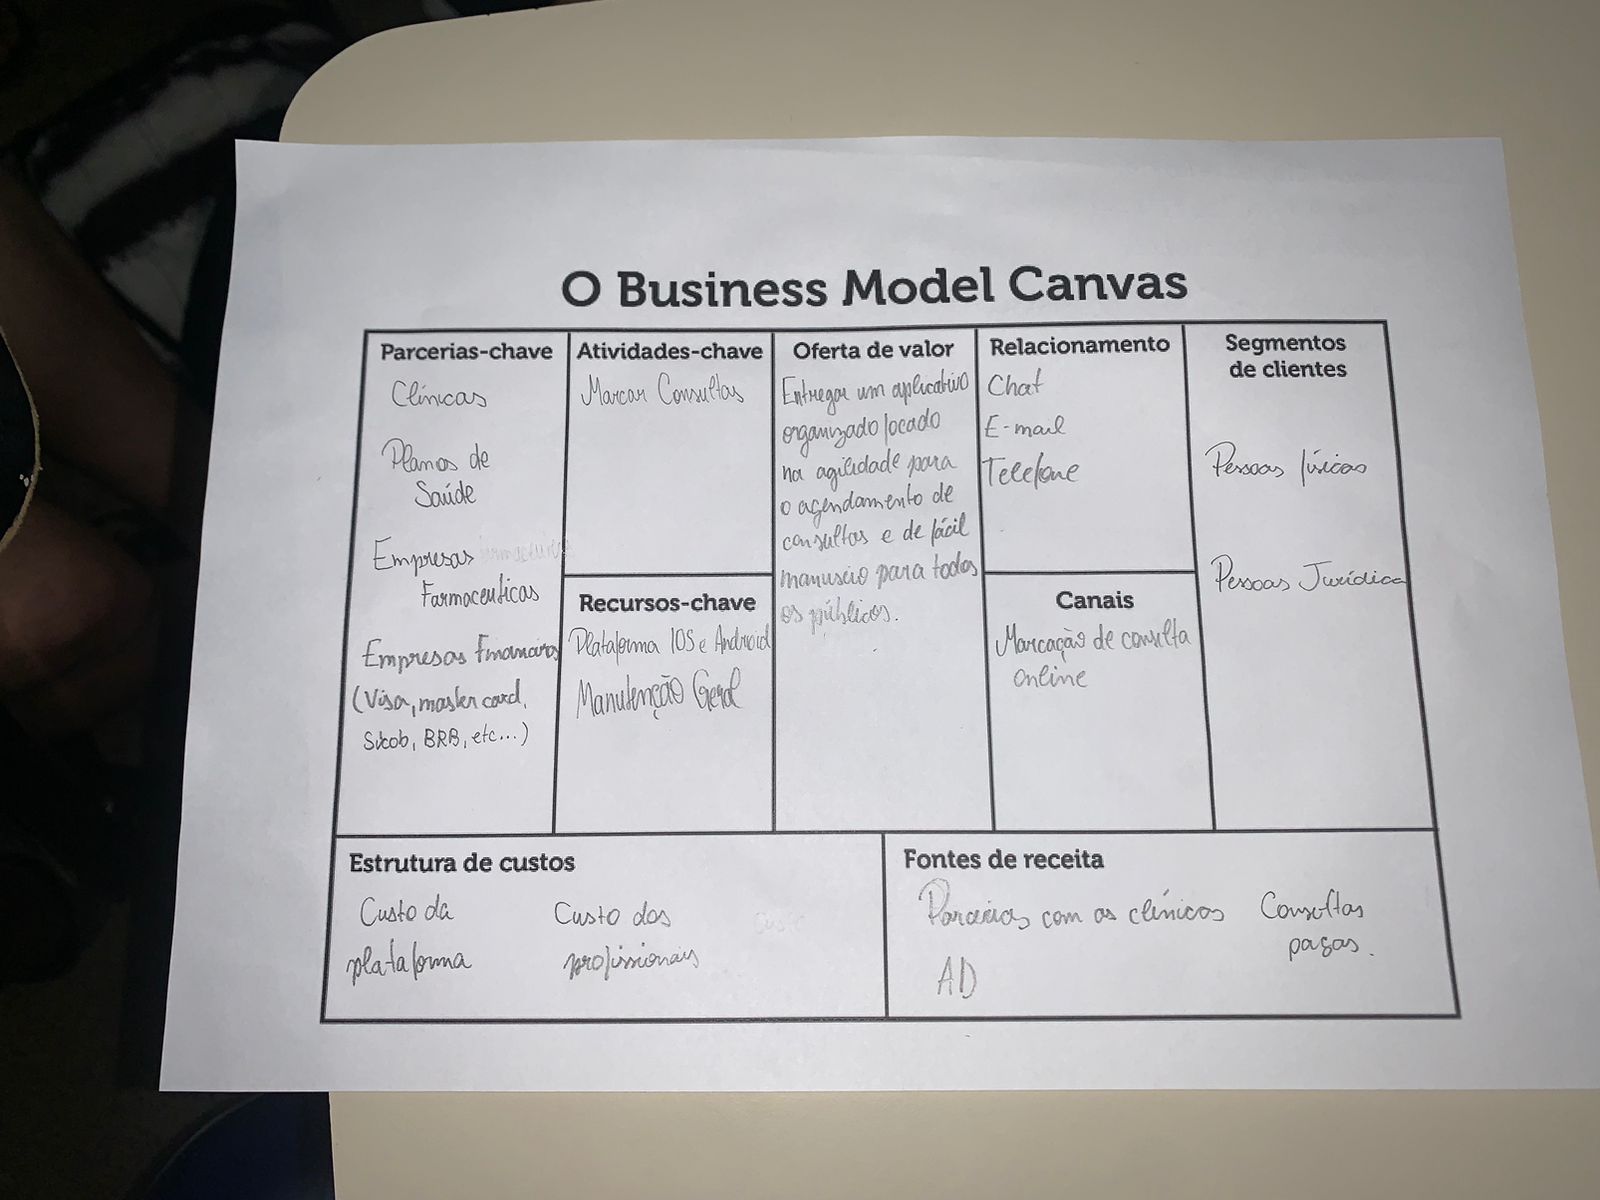 O Business Model Canvas
Parcerias-chave
Clínicas
Planos de
Saúde
Empresas
Farmaceuticas
Empresas Financeiras
(Visa, master card,
Sicob, BRB, etc...)
Atividades-chave
Marcar Consultas
Recursos-chave
Plataforma IOS e Android
Manutenção Geral
Oferta de valor
Entregar um aplicativo
organizado focado
na agilidade para
o agendamento de
consultas e de fácil
manuseio para todos
os públicos.
Relacionamento
Chat
E-mail
Telefone
Canais
Marcação de consulta
online
Segmentos
de clientes
Pessoas físicas
Pessoas Jurídica
Estrutura de custos
Custo da
plataforma
Custo dos
profissionais
Fontes de receita
Parcerias com as clínicas
AD
Consultas
pagas.